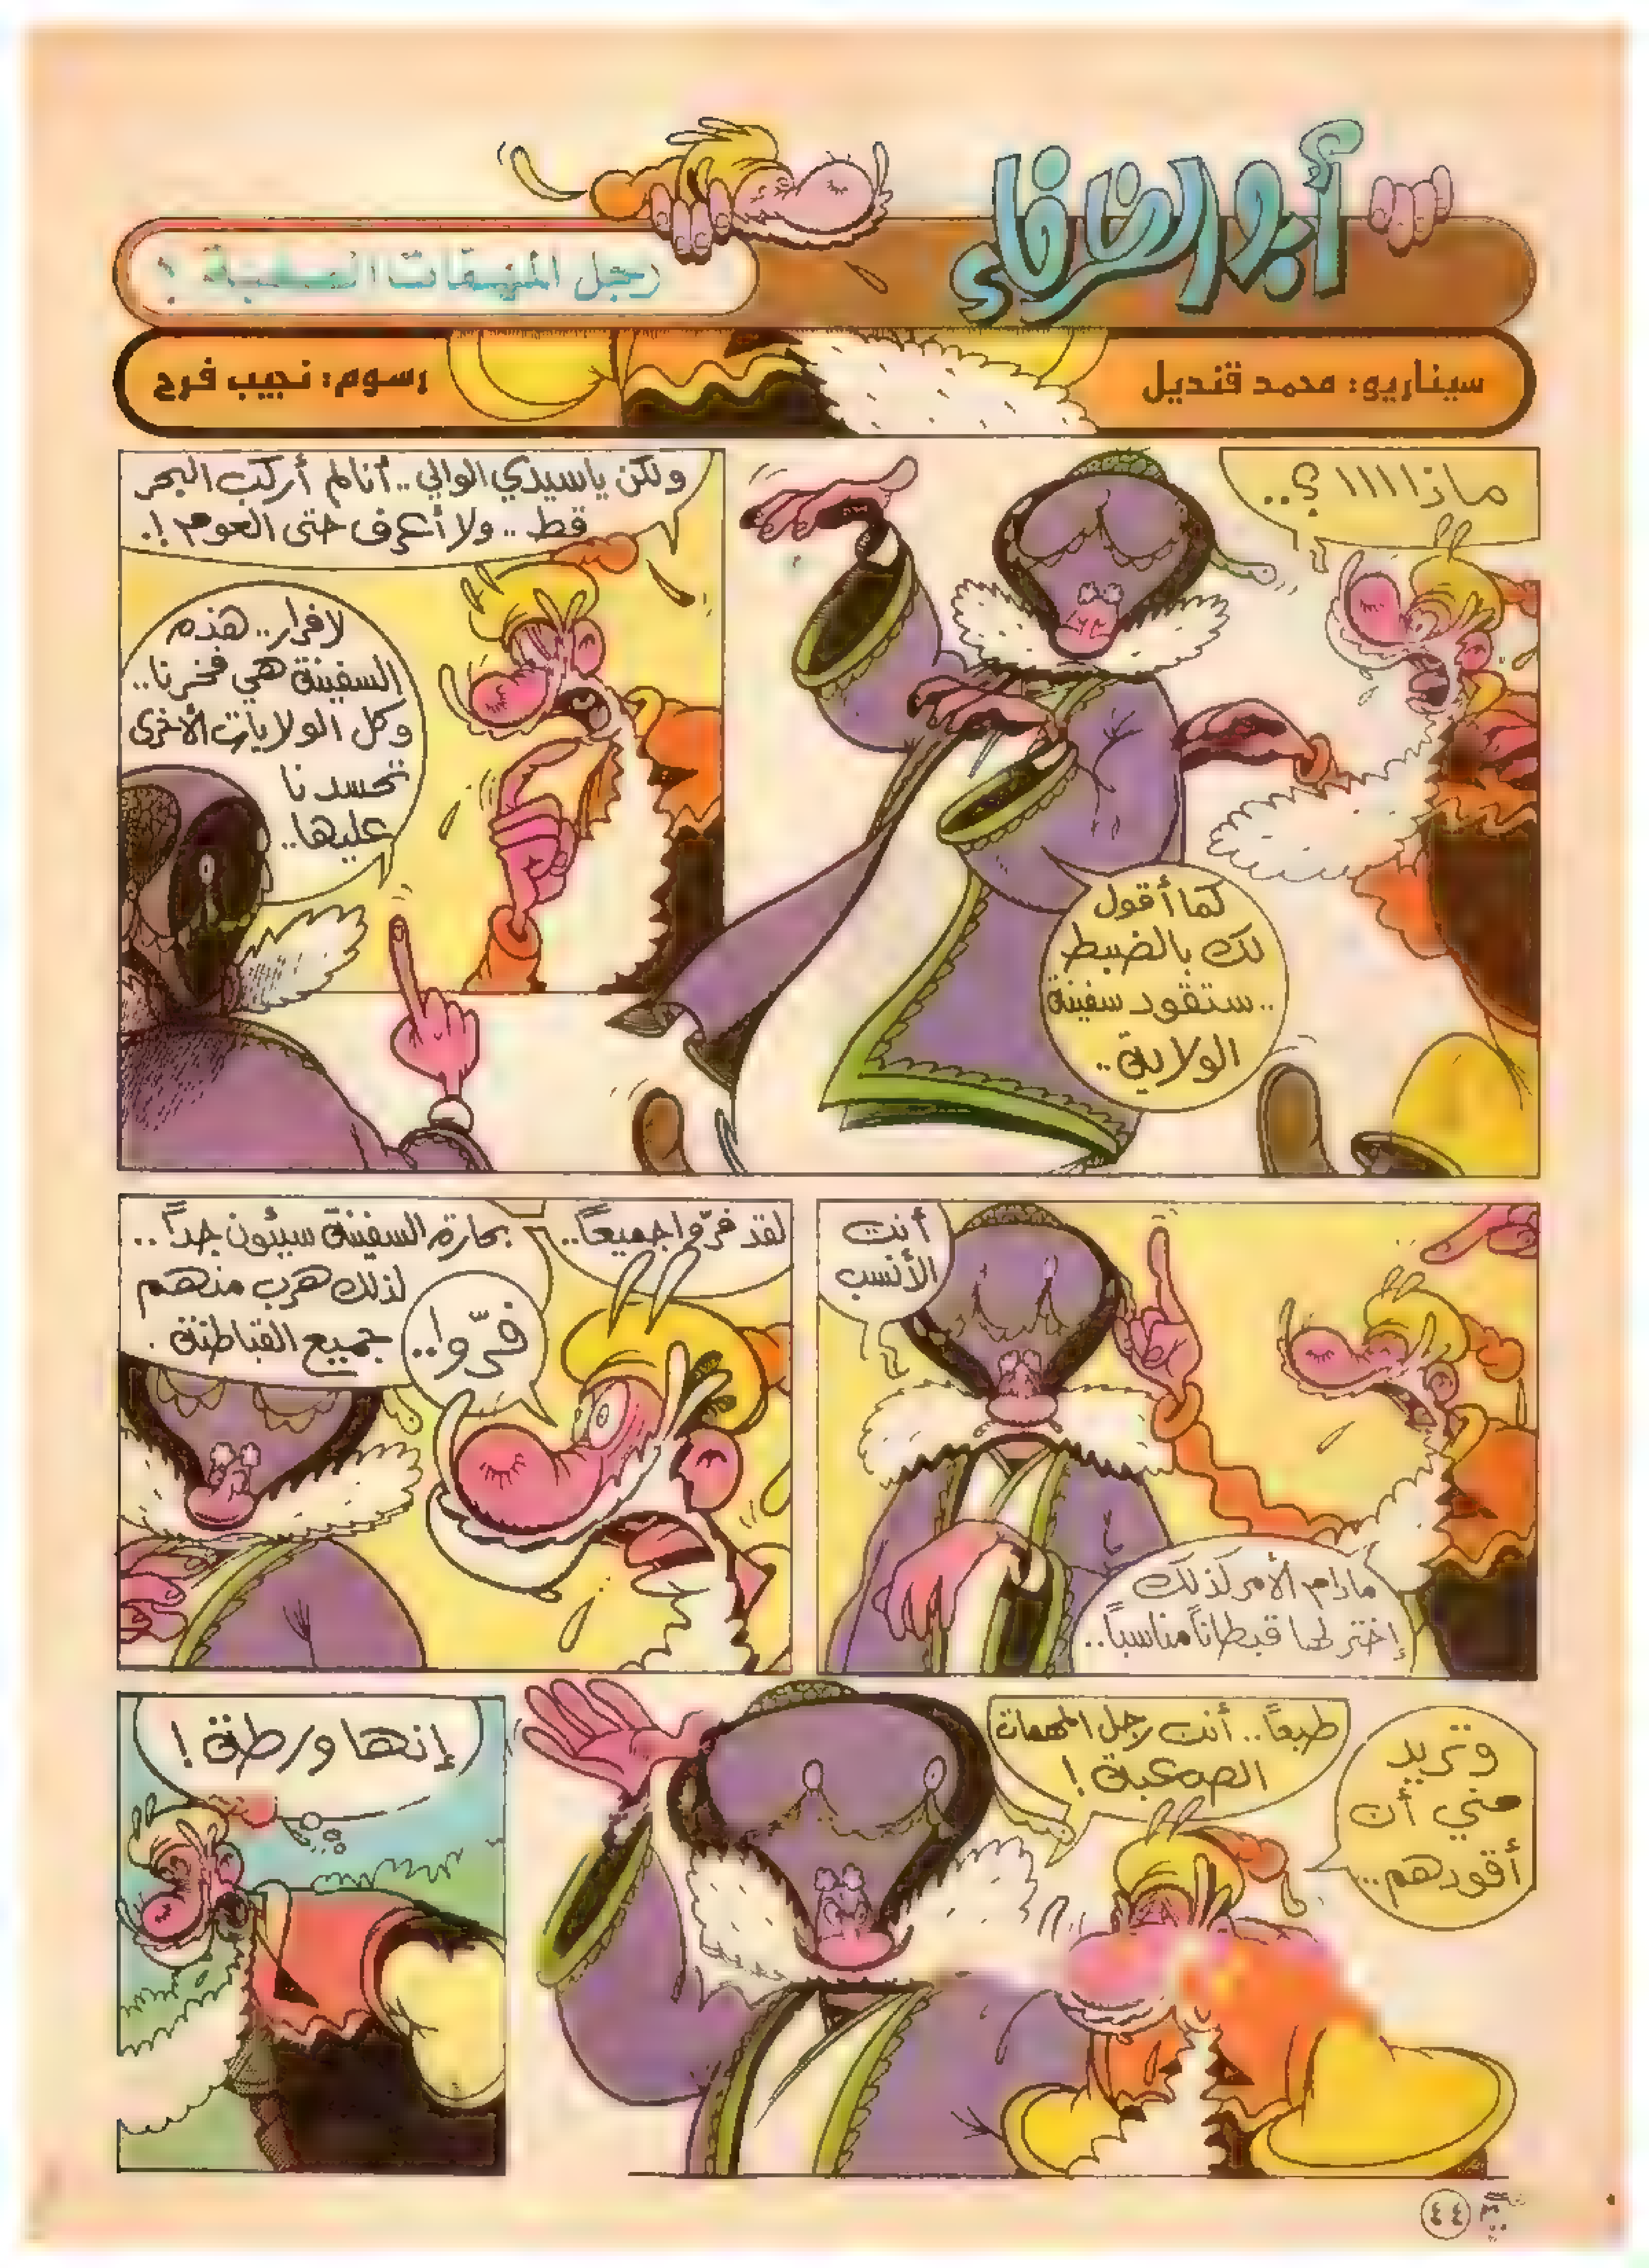 أبو الظرفاء
رجل المهمات الصعبة !
سيناريو: محمد قنديل
رسوم: نجيب فرح
ماذاااا ؟..
كما أقول
لك بالضبط
..ستقود سفينة
الولاية..
ولكن ياسيدي الوالي.. أنا لم أركب البحر
قط .. ولا أعرف حتى العوم !.
لافرار.. هذه
السفينة هي فخرنا..
وكل الولايات الأخرى
تحسدنا
عليها..
مادام الأمر كذلك
إختر لها قبطاناً مناسباً..
أنت
الأنسب
لقد فرّوا جميعاً..
فرّوا..
بحارة السفينة سيئون جداً..
لذلك هرب منهم
جميع القباطنة .
وتريد
مني أن
أقودهم...
طبعاً.. أنت رجل المهمات
الصعبة !
إنها ورطة !
٤٤